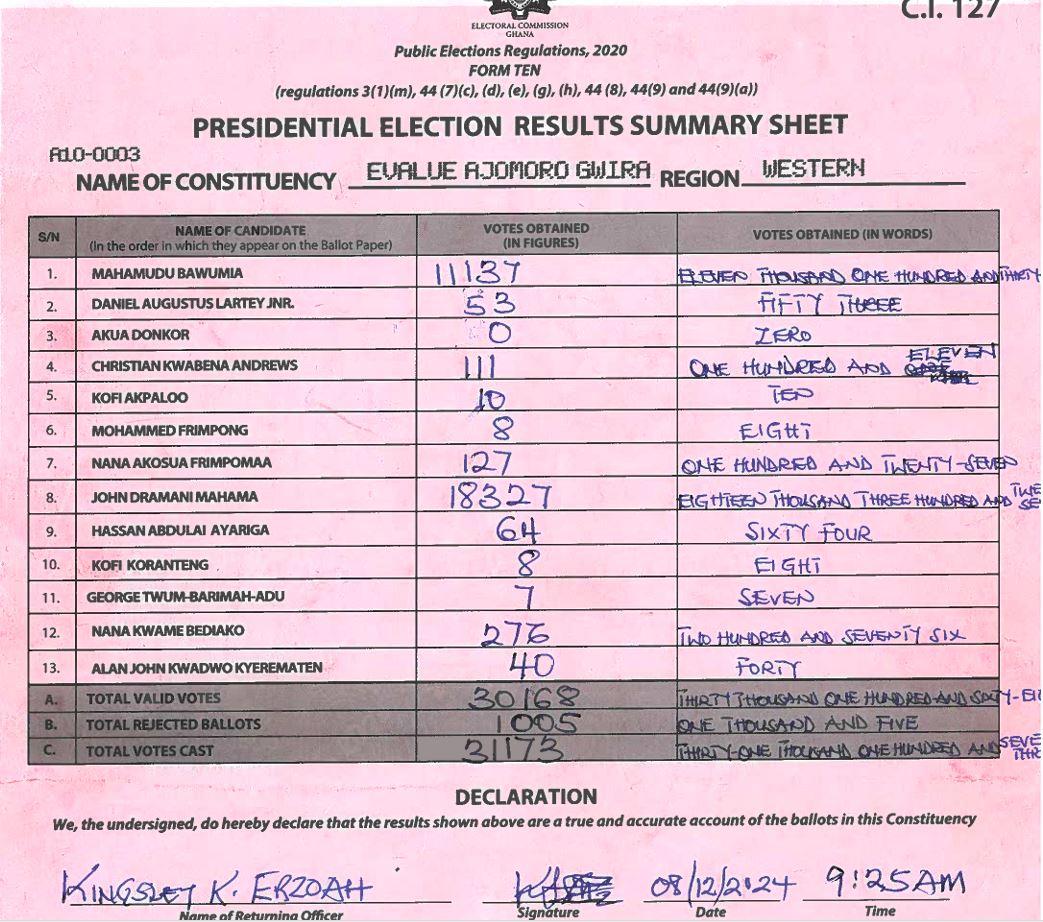 C.I. 127
ELECTORAL COMMISSION
GHANA
Public Elections Regulations, 2020
FORM TEN
(regulations 3(1)(m), 44 (7)(c), (d), (e), (g), (h), 44 (8), 44(9) and 44(9)(a))
PRESIDENTIAL ELECTION RESULTS SUMMARY SHEET
A10-0003
NAME OF CONSTITUENCY EVALUE AJOMORO GWIRA REGION WESTERN
S/N NAME OF CANDIDATE (In the order in which they appear on the Ballot Paper) VOTES OBTAINED (IN FIGURES) VOTES OBTAINED (IN WORDS)
1. MAHAMUDU BAWUMIA 11137 ELEVEN THOUSAND ONE HUNDRED AND THIRTY
2. DANIEL AUGUSTUS LARTEY JNR. 53 FIFTY THREE
3. AKUA DONKOR 0 ZERO
4. CHRISTIAN KWABENA ANDREWS 111 ONE HUNDRED AND ELEVEN
5. KOFI AKPALOO 10 TEN
6. MOHAMMED FRIMPONG 8 EIGHT
7. NANA AKOSUA FRIMPOMAA 127 ONE HUNDRED AND TWENTY-SEVEN
8. JOHN DRAMANI MAHAMA 18327 EIGHTEEN THOUSAND THREE HUNDRED AND TWE SE
9. HASSAN ABDULAI AYARIGA 64 SIXTY FOUR
10. KOFI KORANTENG 8 EIGHT
11. GEORGE TWUM-BARIMAH-ADU 7 SEVEN
12. NANA KWAME BEDIAKO 276 TWO HUNDRED AND SEVENTY SIX
13. ALAN JOHN KWADWO KYEREMATEN 40 FORTY
A. TOTAL VALID VOTES 30168 THIRTY THOUSAND ONE HUNDRED AND SIXTY-EI
B. TOTAL REJECTED BALLOTS 1005 ONE THOUSAND AND FIVE
C. TOTAL VOTES CAST 31173 THIRTY-ONE THOUSAND ONE HUNDRED AND SEVE THR
DECLARATION
We, the undersigned, do hereby declare that the results shown above are a true and accurate account of the ballots in this Constituency
KINGSLEY K. ERZOAH 08/12/2024 9:25AM
Name of Returning Officer Signature Date Time